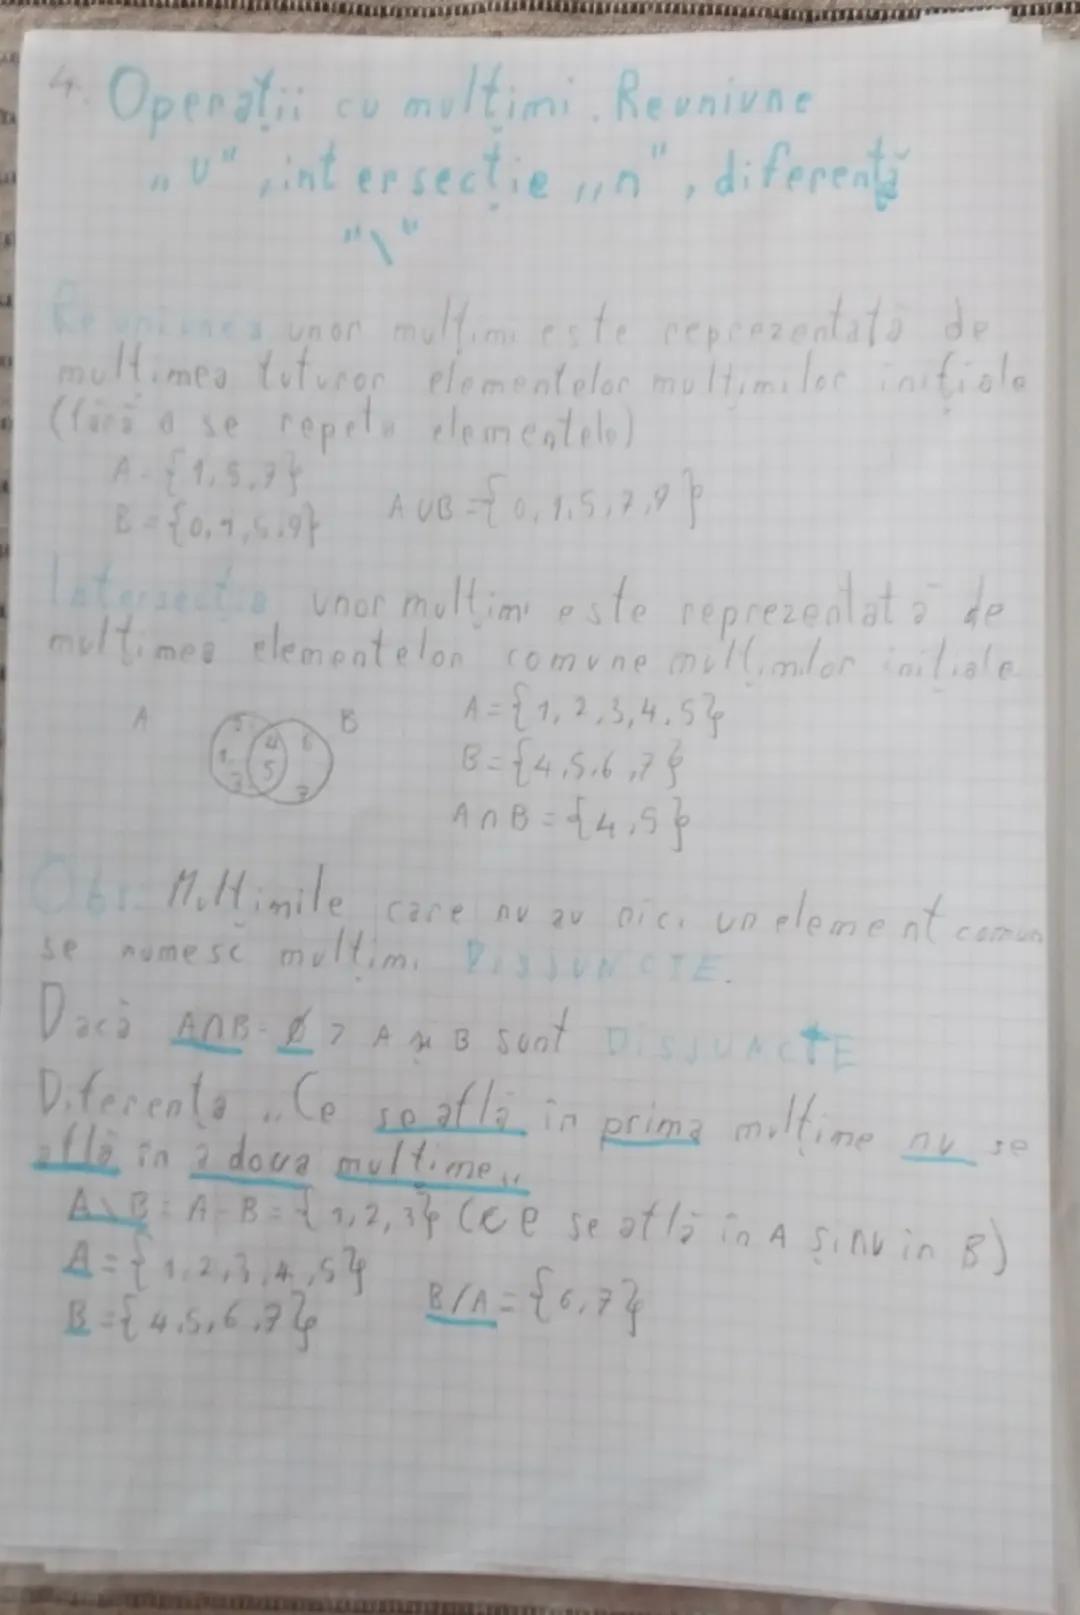 4. Operații cu mulțimi. Reuniune
„U", intersecție „∩", diferență
"\"
Reuniunea unor mulțimi este reprezentată de
mulțimea tuturor elementelor mulțimilor inițiale
(fără a se repeta elementele)
A = {1,5,7}
B = {0,1,5,9}
A∪B = {0,1,5,7,9}
Intersecția unor mulțimi este reprezentată de
mulțimea elementelor comune mulțimilor inițiale
A B
3
1 4 6
2 5 7
A = {1,2,3,4,5}
B = {4,5,6,7}
A∩B = {4,5}
Obs: Mulțimile care nu au nici un element comun
se numesc mulțimi DISJUNCTE.
Dacă A∩B = ∅ > A și B sunt DISJUNCTE
Diferența „Ce se află în prima mulțime nu se
află în a doua mulțime„
A\B = A-B = {1,2,3} (Ce se află în A și nu in B)
A = {1,2,3,4,5}
B = {4,5,6,7}
B/A = {6,7}